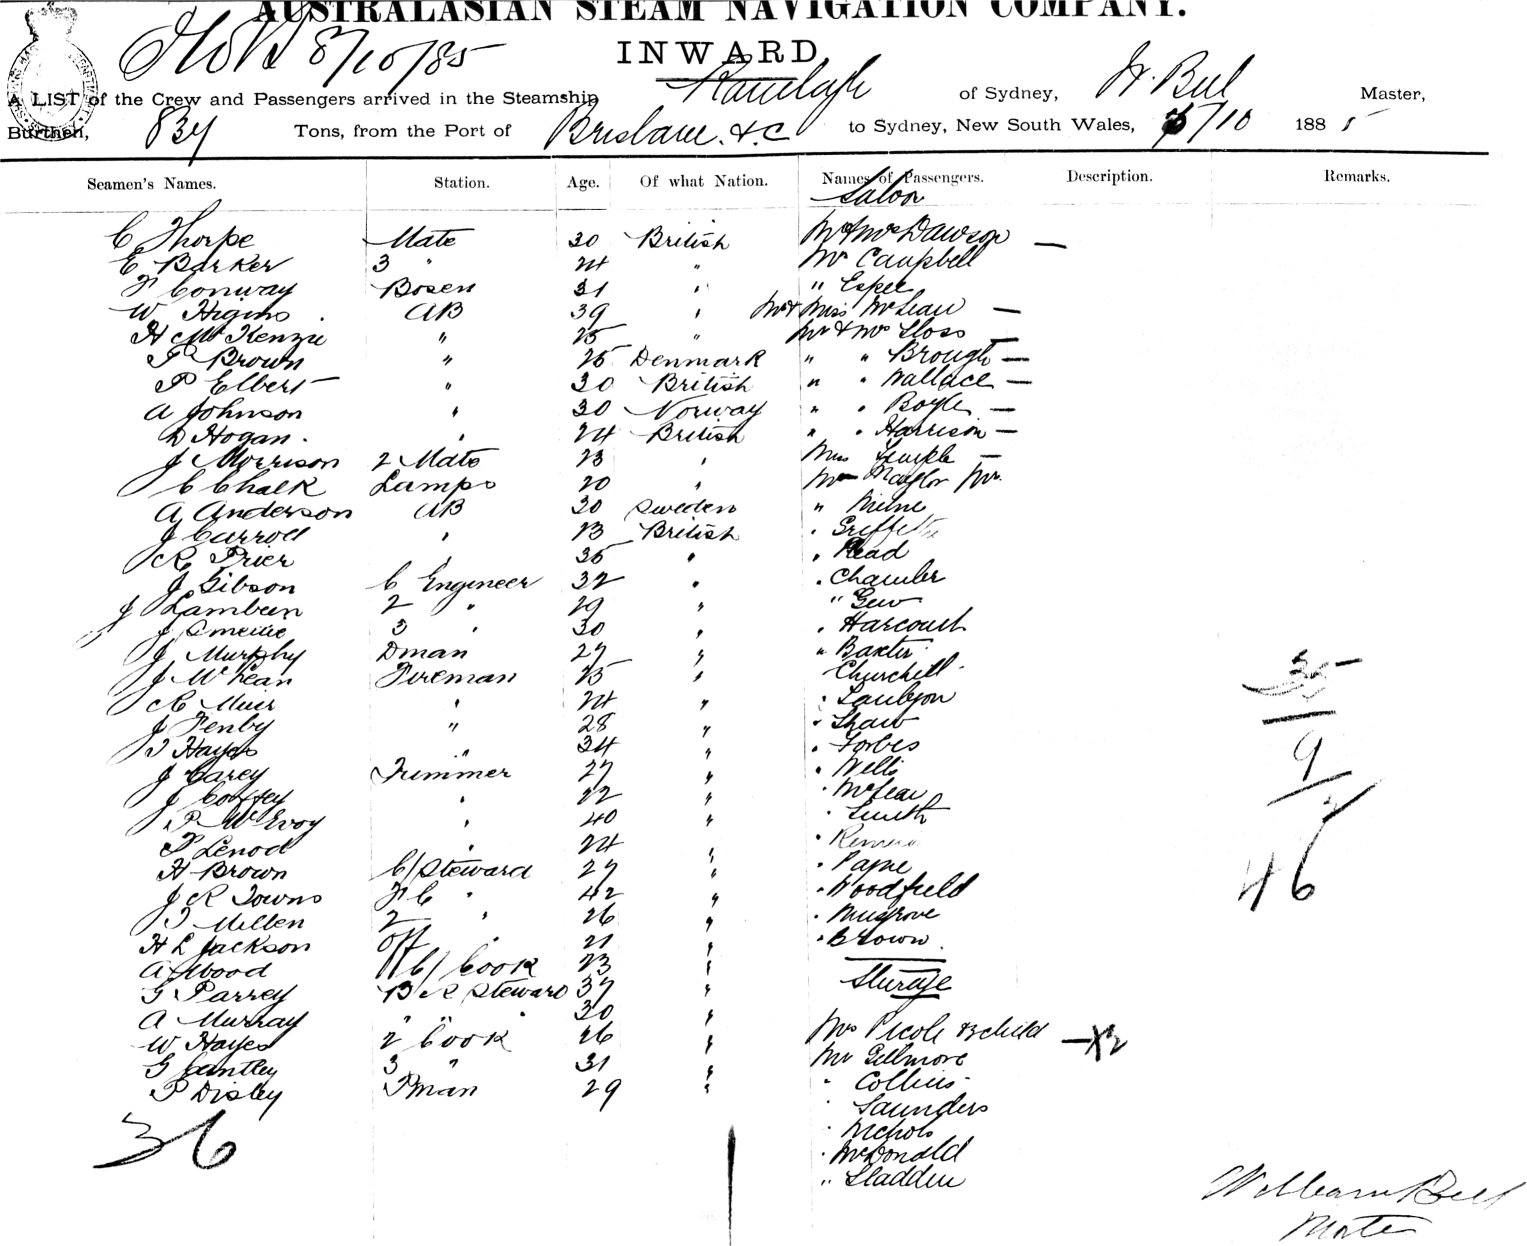 AUSTRALASIAN STEAM NAVIGATION COMPANY.
8/10/85 INWARD
A LIST of the Crew and Passengers arrived in the Steamship Ranelagh of Sydney, W. Bell Master,
Burthen, 834 Tons, from the Port of Brisbane &c to Sydney, New South Wales, 5/10 1885
Seamen's Names. Station. Age. Of what Nation. Names of Passengers. Description. Remarks.
Saloon
C Thorpe Mate 30 British Mr & Mrs Dawson —
E Barker 3 " 24 " Mr Campbell
F Conway Bosen 31 "
W Higins AB 39 " Mr & Miss McLean —
H McKenzie " 25 " Mr & Mrs Gloss —
P Brown " 25 Denmark " " Brough —
P Elbert " 30 British " " Wallace —
A Johnson " 30 Norway " " Boyle —
D Hogan " 24 British " " Harrison —
J Morrison 2 Mate 23 " Miss Temple —
C Chalk Lamps 20 " Mr Naylor Jnr
A Anderson AB 30 Sweden " Milne
J Carroll " 23 British " Griffith
R Prier 35 " " Read
J Gibson C Engineer 32 " " Chamber
J 2 " 29 "
J Smellie 3 " 30 " " Harcourt
J Murphy Dman 27 " " Baxter
J McLean Fireman 25 " Churchill
R Muir " 24 "
J Fenby " 28 " " Shaw
T Hayes " 34 " " Forbes
J Carey Trimmer 27 " " Wells
J Coffey " 22 " " McLean
P McEvoy " 40 " " Smith
P Lenod " 24 "
H Brown C/Steward 27 " " Payne
J R Towns F C " 42 " " Woodfield
T Millen 2 " 26 " " Musgrove
H L Jackson 21 " " Brown
A Wood C/ Cook 23 "
G Parrey B R Steward 37 " Steerage
A Murray " " " 30 "
W Hayes 2 Cook 26 " Mrs Picole & child — X2
G Cantley 3 " 31 " Mr Gillmore
P Disley Fman 29 " " Collins
" Saunders
36 " Nichols
" McDonald
" Gladden
35
9
2
46
William Bell
Master